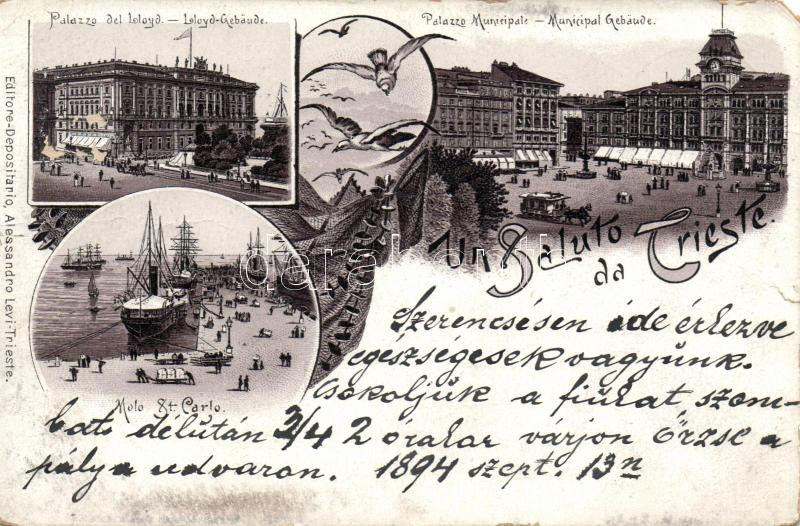 Palazzo del Lloyd. – Lloyd-Gebäude.
Palazzo Municipale – Municipal Gebäude.
Editore-Depositario, Alessandro Levi-Trieste.
Un Saluto
da Trieste.
darabanth
Molo St. Carlo.
Szerencsésen ide érkezve
egészségesek vagyunk.
Csókoljuk a fiúkat szom-
bats délután 3/4 2 órakar várjon Örzse a
pálya udvaron. 1894 szept. 13n